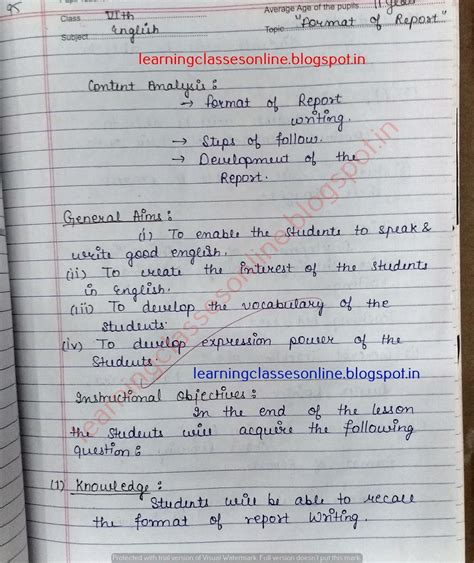 95
Class VIth Average Age of the pupils 11 years
Subject English Topic "Format of Report"
learningclassesonline.blogspot.in
Content Analysis :
→ Format of Report
writing.
→ Steps of follow.
→ Development of the
Report.
General Aims :
(i) To enable the students to speak &
write good english.
(ii) To create the interest of the students
in English.
(iii) To develop the vocabulary of the
students.
(iv) To develop expression power of the
students.
learningclassesonline.blogspot.in
learningclassesonline.blogspot.in
Instructional Objectives :
In the end of the lesson
the students will acquire the following
question :
(1) Knowledge :
Students will be able to recall
the format of report writing.
Protected with trial version of Visual Watermark. Full version doesn't put this mark.